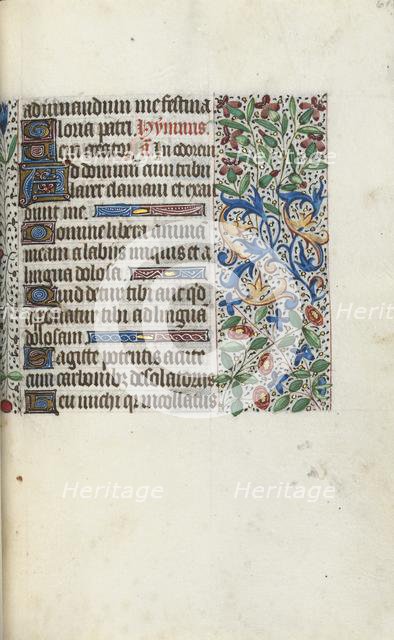 ad iuuandum me festina
Gloria patri. Hymnus.
Ueni creator. an. In conuer
Ad dominum cum tribu
larer clamaui et exau
diuit me.
Domine libera animam
meam a labijs iniquis et a
lingua dolosa.
Quid detur tibi aut qd
apponatur tibi ad lingua
dolosam.
Sagitte potentis acute
cum carbonibz desolatorijs
Heu michi qz incolatus
Heritage
Heritage
Heritage
Heritage